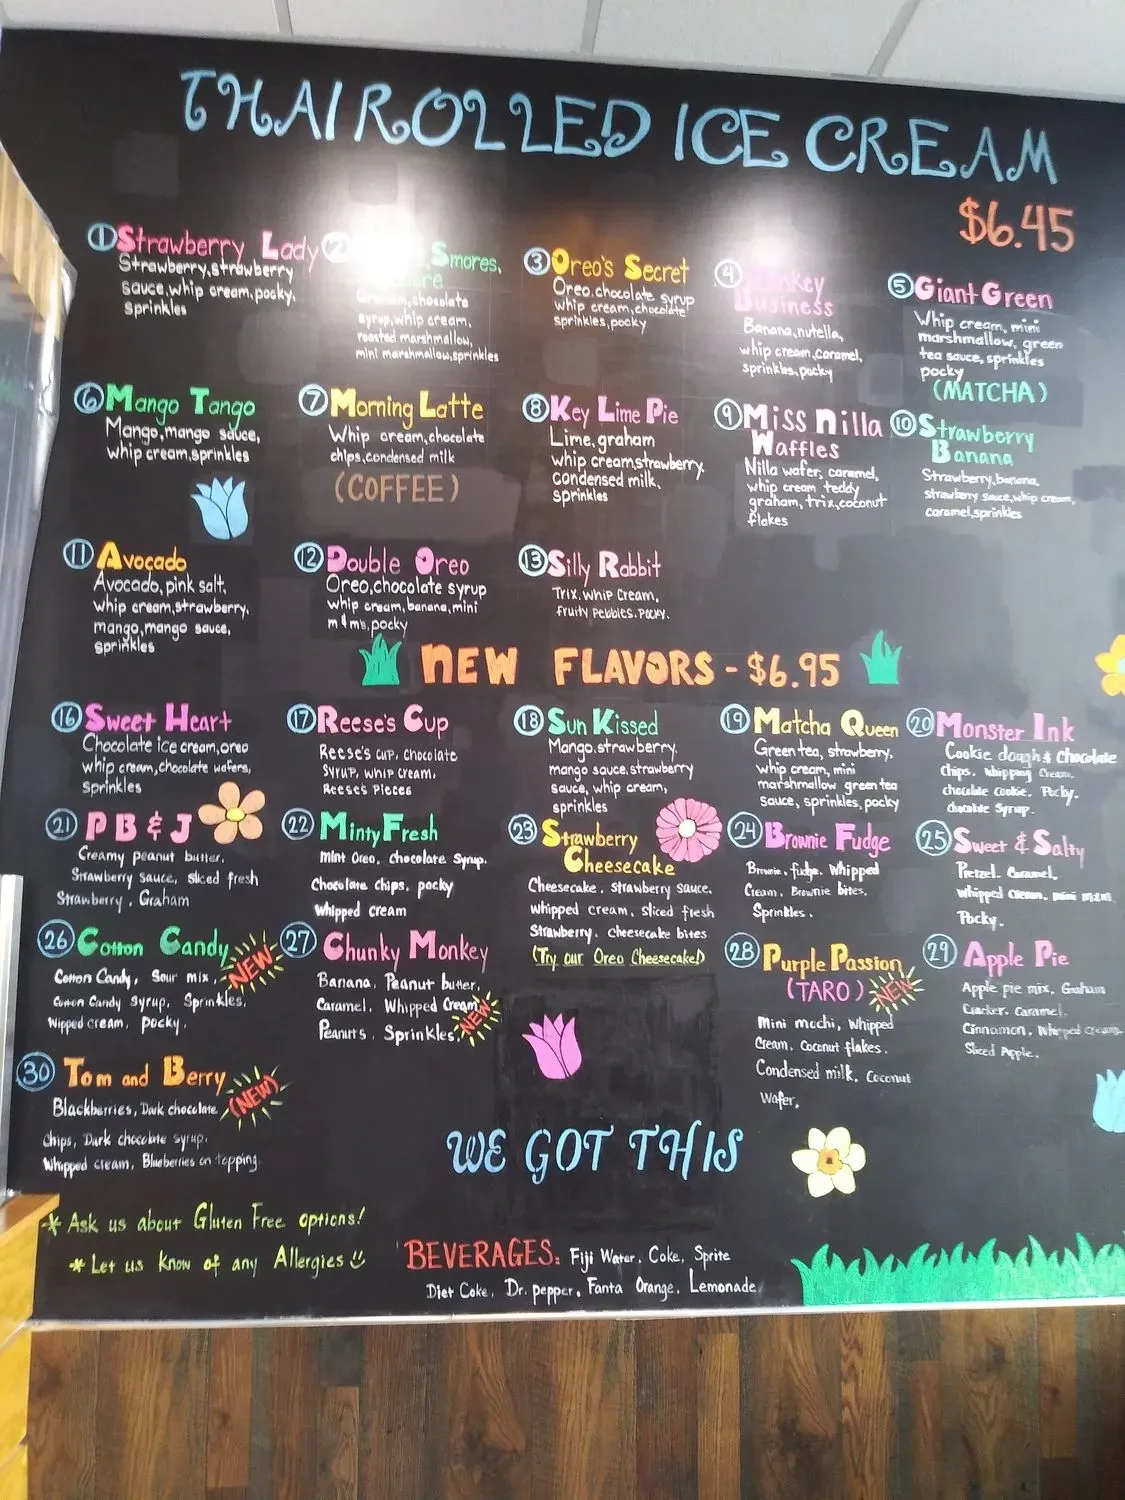 THAI ROLLED ICE CREAM
$6.45
1 Strawberry Lady
Strawberry, strawberry
sauce, whip cream, pocky,
sprinkles
2 Smores,
chocolate
syrup, whip cream,
roasted marshmallow,
mini marshmallow, sprinkles
3 Oreo's Secret
Oreo, chocolate syrup
whip cream, chocolate
sprinkles, pocky
4 Monkey
Business
Banana, nutella,
whip cream, caramel,
sprinkles, pocky
5 Giant Green
Whip cream, mini
marshmallow, green
tea sauce, sprinkles
pocky
(MATCHA)
6 Mango Tango
Mango, mango sauce,
whip cream, sprinkles
7 Morning Latte
Whip cream, chocolate
chips, condensed milk
(COFFEE)
8 Key Lime Pie
Lime, graham
whip cream, strawberry,
condensed milk,
sprinkles
9 Miss Nilla
Waffles
Nilla wafer, caramel,
whip cream teddy
graham, trix, coconut
flakes
10 Strawberry
Banana
Strawberry, banana,
strawberry sauce, whip cream,
caramel, sprinkles
11 Avocado
Avocado, pink salt,
whip cream, strawberry,
mango, mango sauce,
sprinkles
12 Double Oreo
Oreo, chocolate syrup
whip cream, banana, mini
m&m's, pocky
13 Silly Rabbit
Trix, whip cream,
fruity pebbles, pocky.
NEW FLAVORS - $6.95
16 Sweet Heart
Chocolate ice cream, oreo
whip cream, chocolate wafers,
sprinkles
17 Reese's Cup
Reese's cup, chocolate
syrup, whip cream,
reeses pieces
18 Sun Kissed
Mango, strawberry,
mango sauce, strawberry
sauce, whip cream,
sprinkles
19 Matcha Queen
Green tea, strawberry,
whip cream, mini
marshmallow green tea
sauce, sprinkles, pocky
20 Monster Ink
Cookie dough & chocolate
chips, whipping cream,
chocolate cookie, Pocky,
chocolate syrup.
21 PB & J
Creamy peanut butter,
Strawberry sauce, sliced fresh
Strawberry, Graham
22 Minty Fresh
mint oreo, chocolate syrup,
chocolate chips, pocky
whipped cream
23 Strawberry
Cheesecake
Cheesecake, strawberry sauce,
whipped cream, sliced fresh
strawberry, cheesecake bites
(Try our Oreo Cheesecake!)
24 Brownie Fudge
Brownie, fudge, whipped
cream, Brownie bites,
Sprinkles.
25 Sweet & Salty
Pretzel, caramel,
whipped cream, mini m&m
Pocky.
26 Cotton Candy NEW
Cotton Candy, Sour mix,
cotton candy syrup, Sprinkles,
wipped cream, pocky.
27 Chunky Monkey
Banana, Peanut butter,
Caramel, Whipped Cream,
Peanuts, Sprinkles. NEW
28 Purple Passion
(TARO) NEW
Mini mochi, whipped
cream, coconut flakes,
condensed milk, coconut
wafer,
29 Apple Pie
Apple pie mix, Graham
cracker, caramel,
cinnamon, whipped cream
sliced apple.
30 Tom and Berry
(NEW)
Blackberries, Dark chocolate
chips, Dark chocolate syrup,
whipped cream, Blueberries on topping.
WE GOT THIS
* Ask us about Gluten Free options!
* Let us know of any Allergies
BEVERAGES: Fiji Water, Coke, Sprite
Diet Coke, Dr. pepper, Fanta Orange, Lemonade